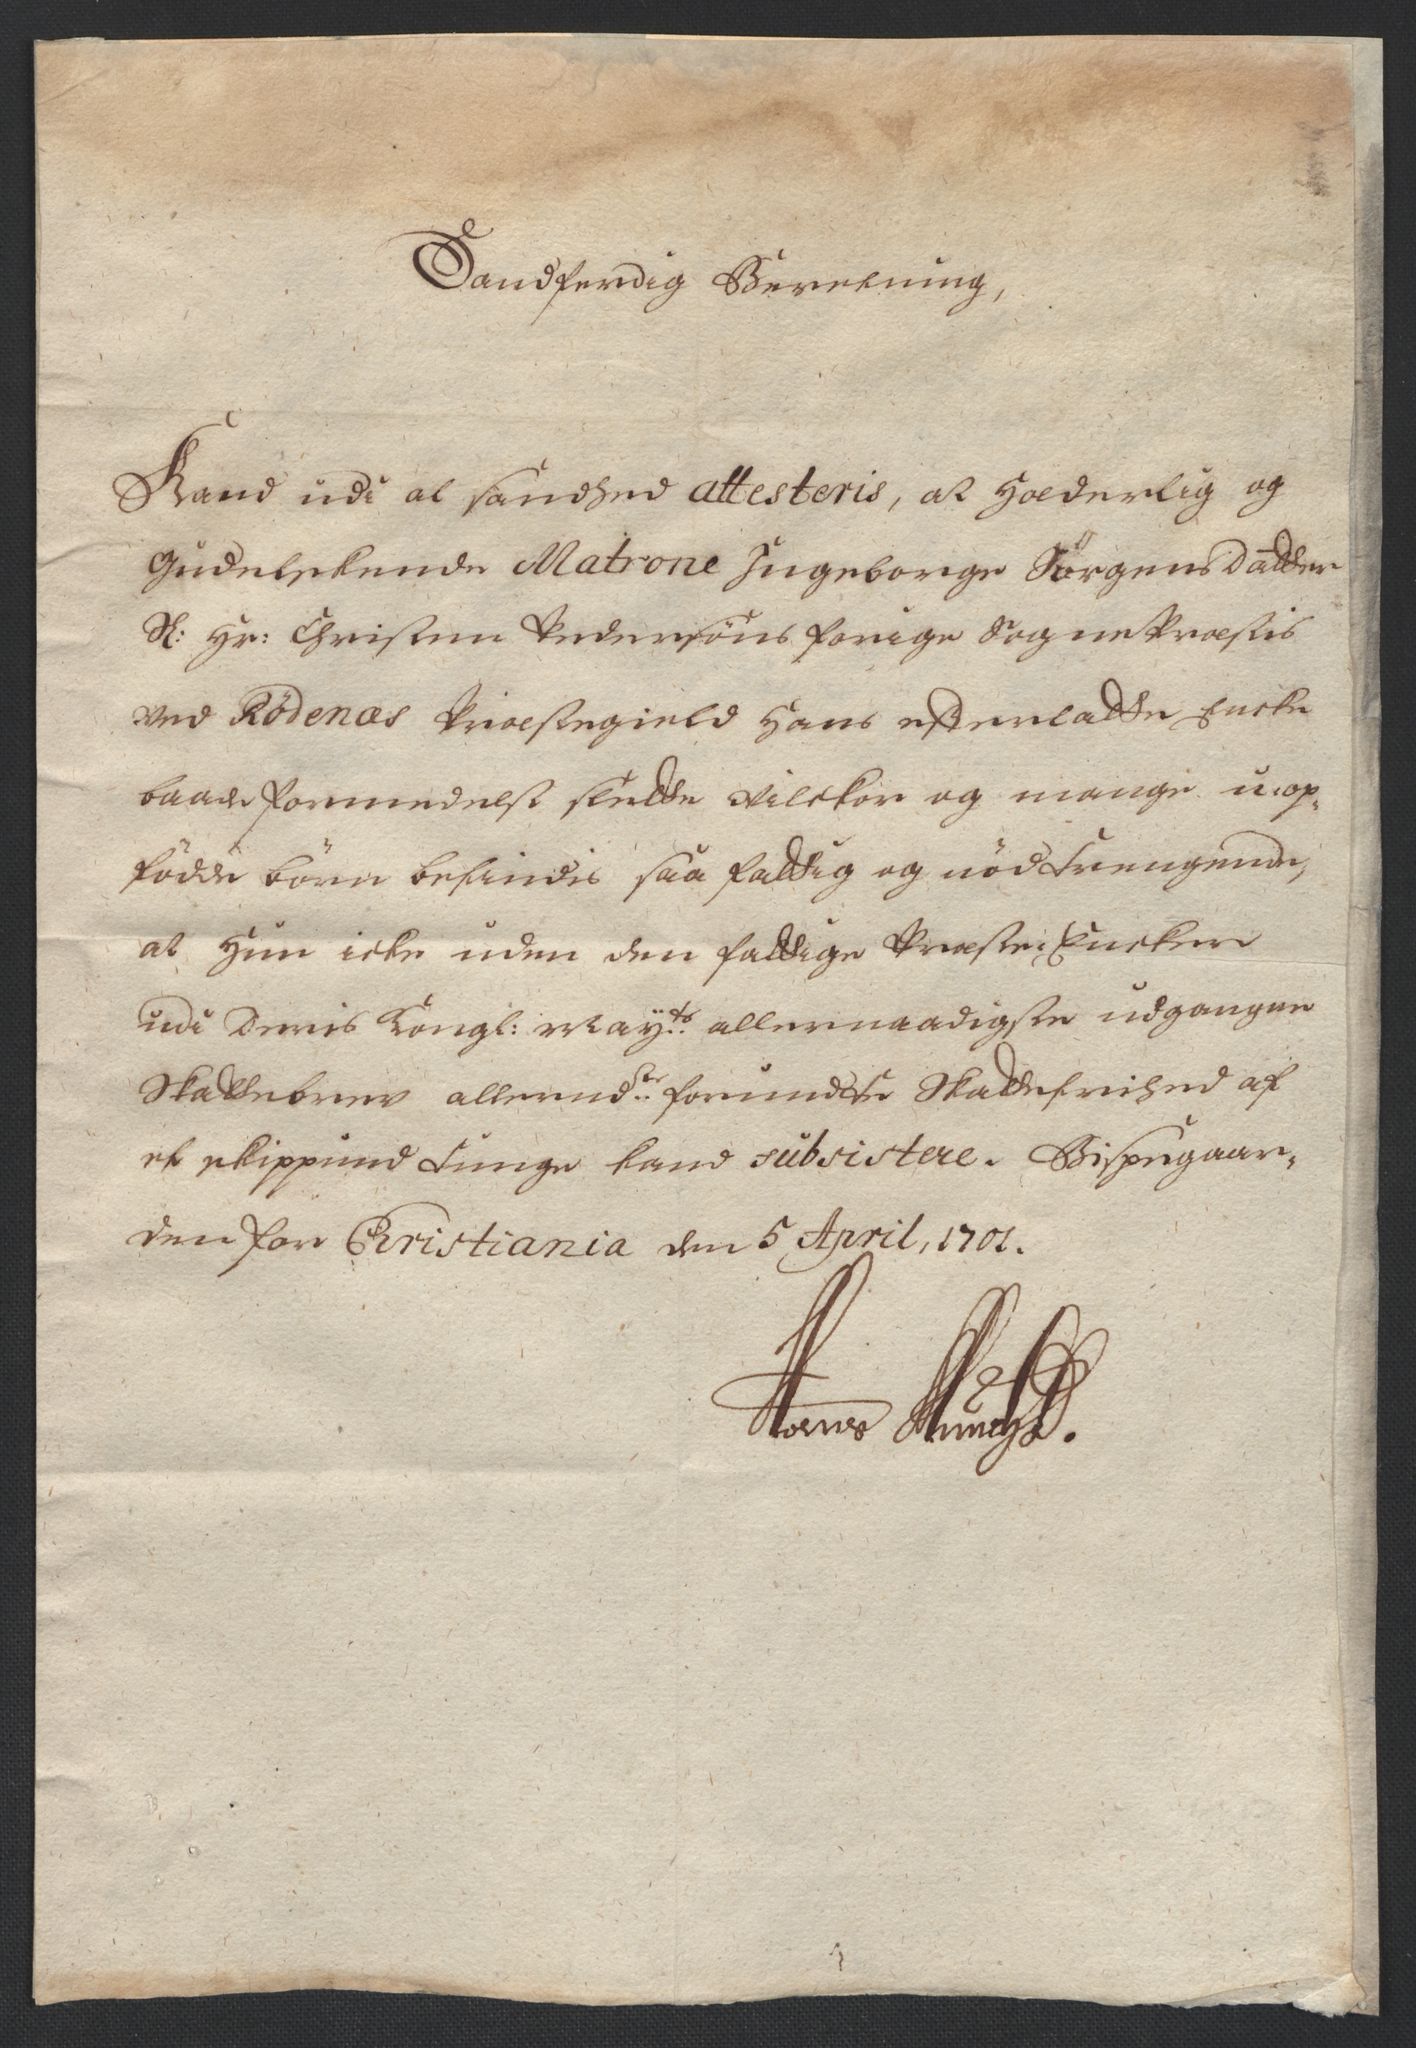 Sandferdig Beretning,
Kand udi al sandhed attesteris, at Hæderlig og
gudelskende Matrone Ingeborge JørgensDatter
Sl: Hr: Christen Pedersøns forige SognePræstis
ved Rödenæs Præstegield Hans efterlatte Encke
baade formedelst slette vilckor og mange u-op-
födde börn befindis saa fattig og nödtrengende,
at Hun icke uden den fattige Præste-Encker
udi Deris Kongl: May:ts allernaadigste udgangne
Skattebrev allernd:ste forundte Skattefrihed af
et skippund tunge kand subsistere. Bispegaar-
den for Christiania den 5 April, 1701.
Hans Munch.